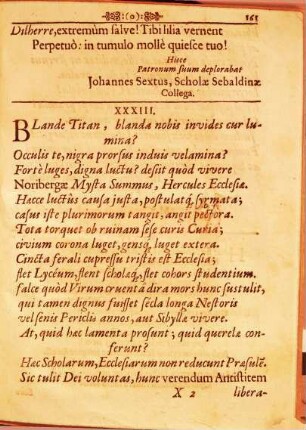 (o) 161
Dilherre, extremùm salve! Tibi lilia vernent
Perpetuò: in tumulo mollè quiesce tuo!
Hisce
Patronum suum deplorabat
Johannes Sextus, Scholæ Sebaldinæ
Collega.
XXXIII.
BLande Titan, blanda nobis invides cur lu-
mina?
Occulis te, nigra prorsus induis velamina?
Fortè luges, digna luctu? desiit quòd vivere
Noribergæ Mysta Summus, Hercules Ecclesiæ.
Hæcce luctûs causa justa, postulatq; sygmata;
casus iste plurimorum tangit, angit pectora.
Tota torquet ob ruinam sese curis Curia;
civium corona luget, gensq; luget extera.
Cincta ferali cupressu tristis est Ecclesia;
flet Lycéum, flent scholæq;, flet cohors studentium.
falce quòd Virum cruentâ dira mors hunc sustulit,
qui tamen dignus fuisset sêcla longa Nestoris
vel senis Pericli annos, aut Sibyllæ vivere.
At, quid hæc lamenta prosunt; quid querelæ con-
ferunt?
Hæc Scholarum, Ecclesiarum non reducunt Præsulẽ.
Sic tulit Dei voluntas, hunc verendum Antistitem
X 2 libera-